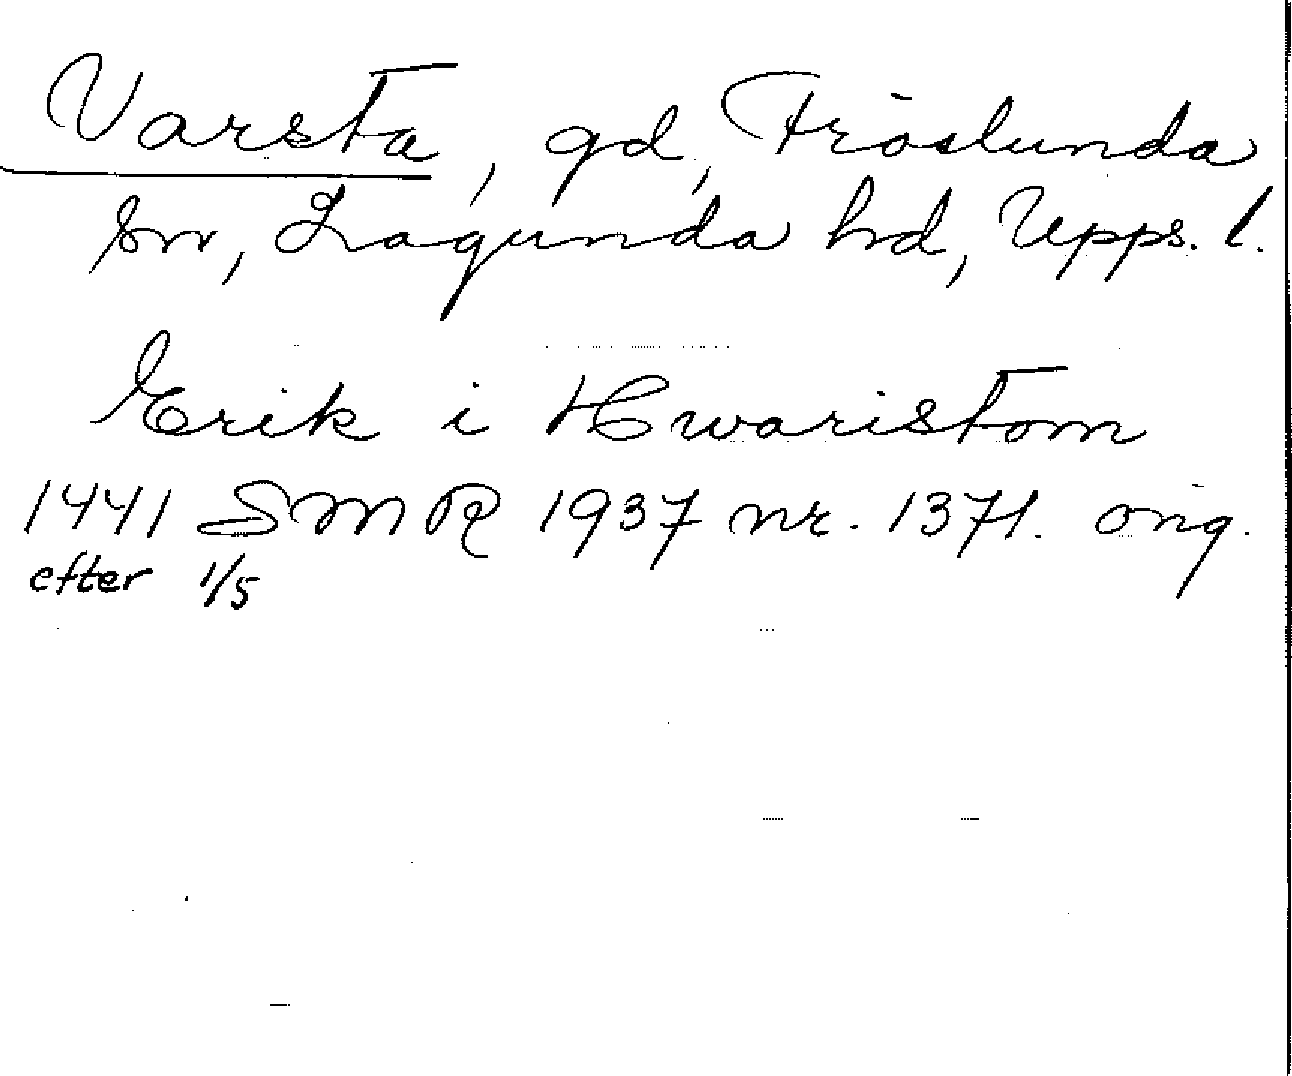 Varsta, gd, Fröslunda
sn, Lagunda hd, Upps. l.
Erik i Hwaristom
1441 SMR 1937 nr. 1371. orig.
efter 1/5